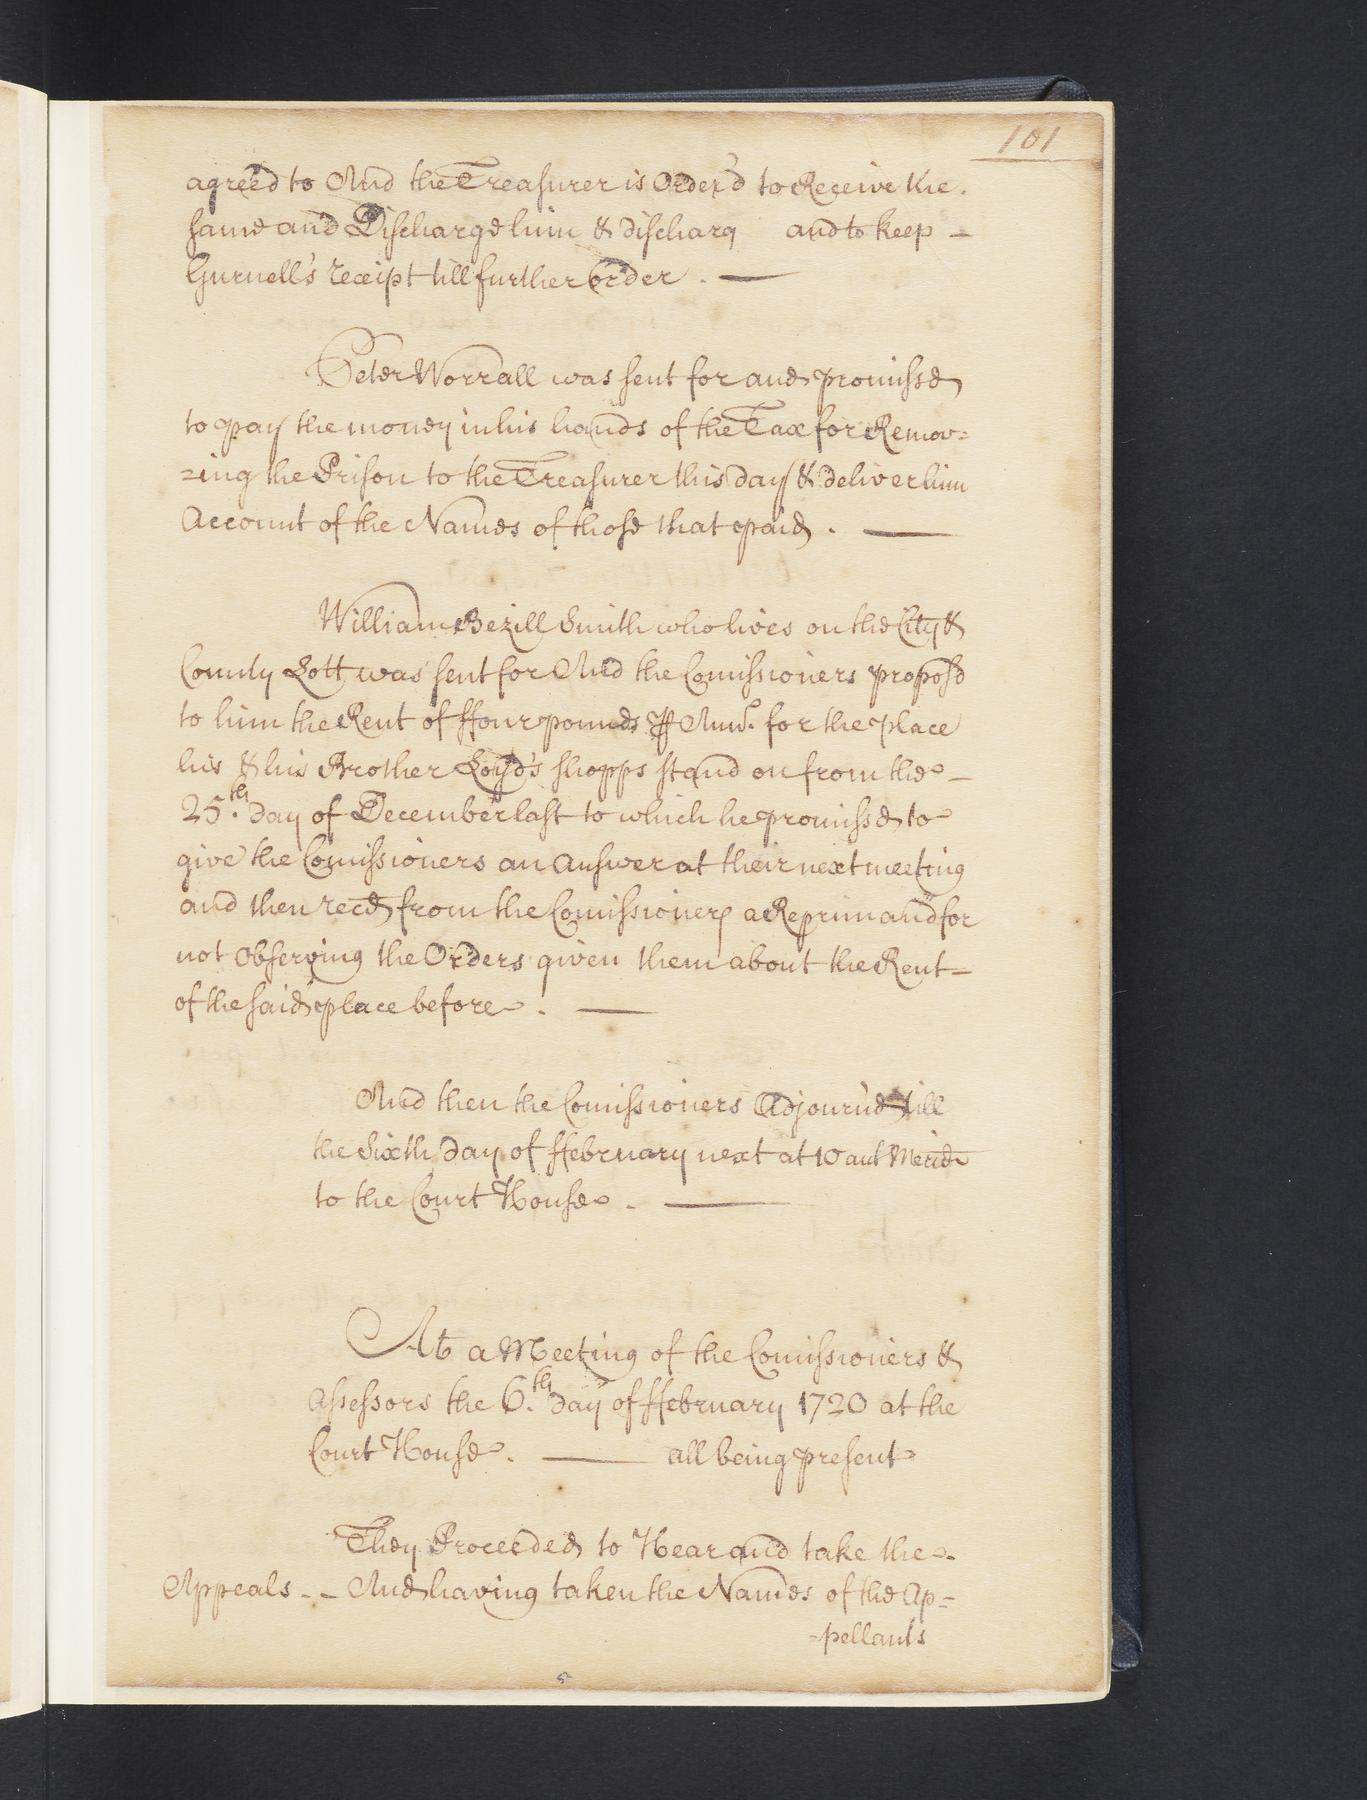 101
agreed to And the Treasurer is Order'd to Receive the
same and Discharge him & discharg and to keep -
Gurnell's receipt till further order. —
Peter Worrall was sent for and promissed
to pay the money in his hands of the Tax for Remov=
=ing the Prison to the Treasurer this day & deliver him
Account of the Names of those that paid. —
William Bezill Smith who lives on the City &
County Lott was sent for And the Comissioners propos'd
to him the Rent of ffour pounds ⅌ Annũ. for the place
his & his Brother Loyd's shopps stand on from the -
25.th day of December last to which he promissed to
give the Comissioners an answer at their next meeting
and then recd from the Comissioners a Reprimand for
not observing the Orders given them about the Rent -
of the said place before. —
And then the Comissioners Adjourn'd till
the Sixth day of ffebruary next at 10 ant Merid
to the Court House. —
At a Meeting of the Comissioners &
Assessors the 6.th day of ffebruary 1720 at the
Court House. — all being present
They Proceeded to Hear and take the -
Appeals - - And having taken the Names of the Ap=
=pellants